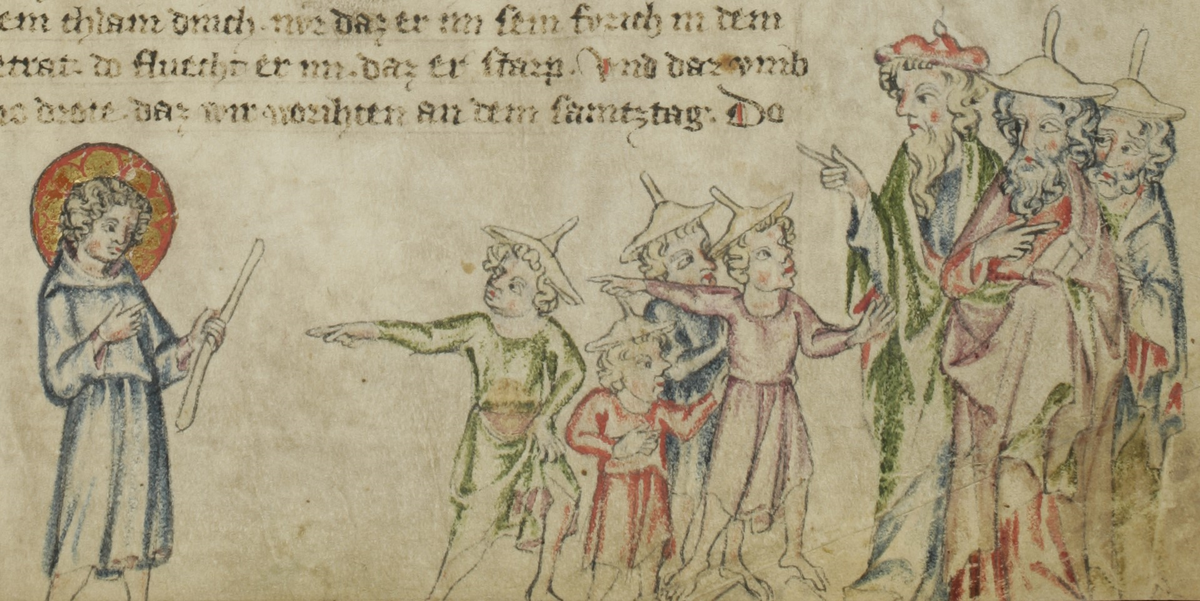 ein chlain dinch. nvr daz er im sein fvrich in dem
etrat. do fluecht er im. daz er starp. Vnd daz vmb
drote. daz wir worihten an dem samtztag. Do